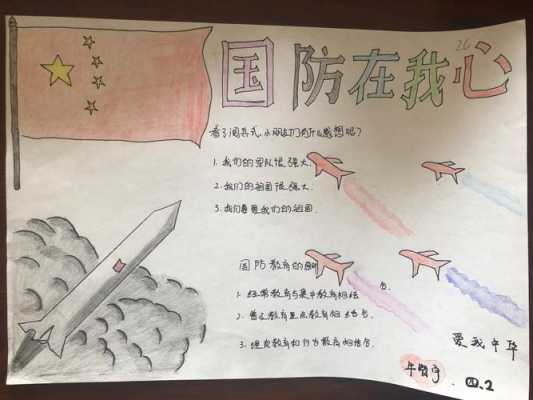 国防在我心
26
看了阅兵式,小朋友们有什么感想呢?
1. 我们的军队很强大.
2. 我们的祖国很强大.
3. 我们要爱我们的祖国.
国防教育的原则
1. 经常教育与集中教育相结合.
2. 普及教育重点教育相结合.
3. 理论教育和行为教育相结合.
爱我中华
四.2